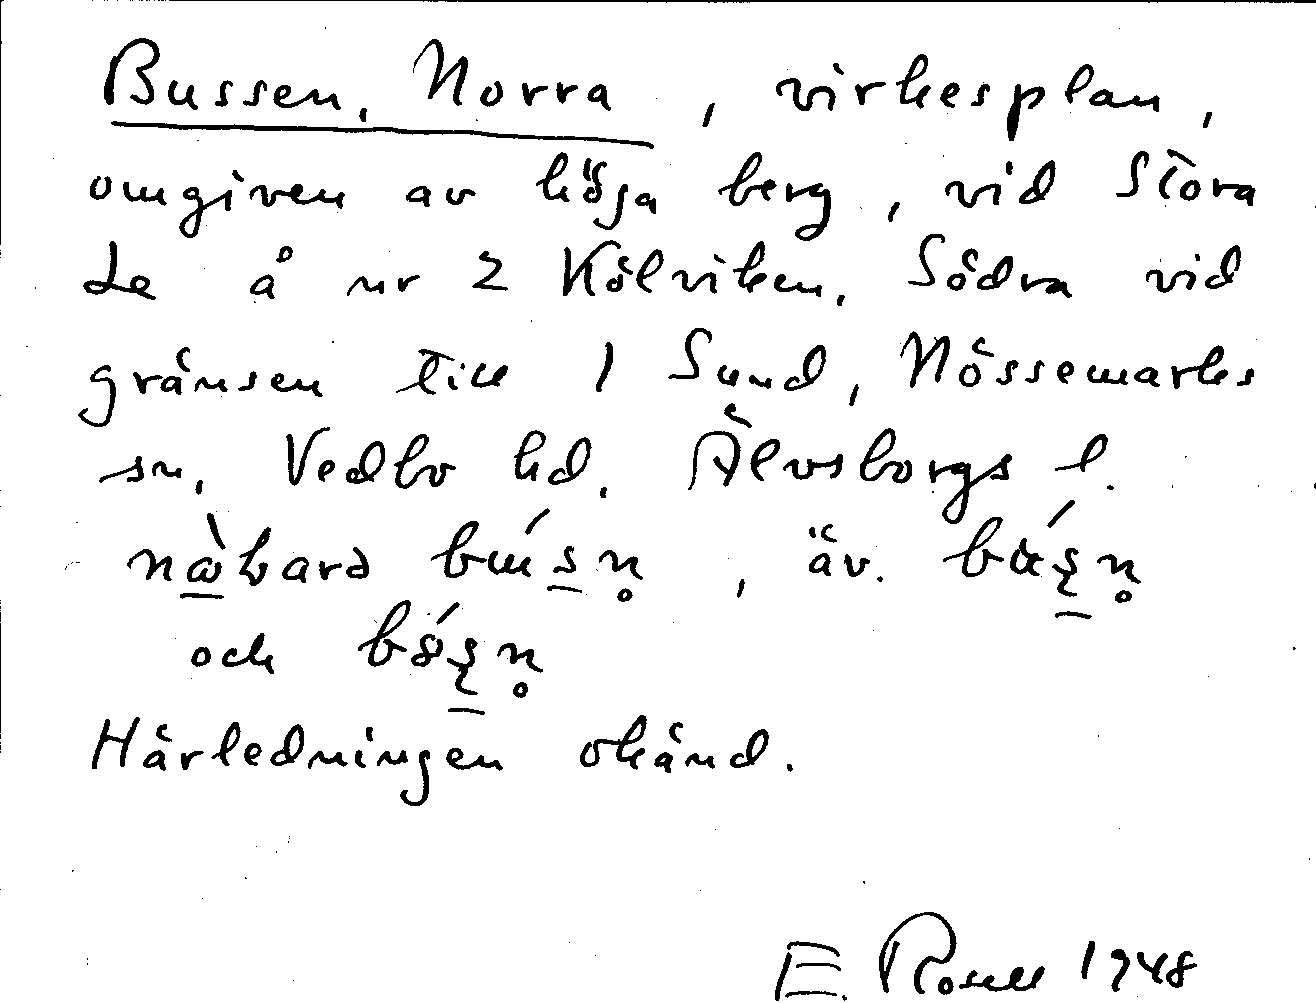 Bussen, Norra, virkesplan,
omgiven av höga berg, vid Stora
Le å nr 2 Kölviken. Södra vid
gränsen till 1 Sund, Nössemarks
sn, Vedbo hd. Älvsborgs l.
, äv.
och
Härledningen okänd.
E. Rosell 1948